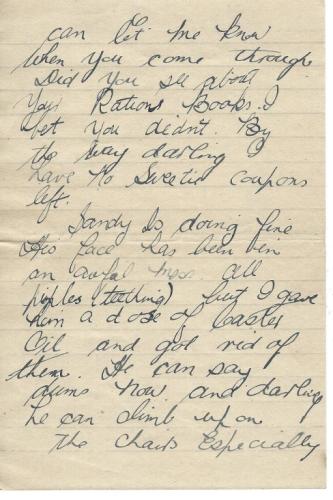 can let me know
when you come through
Did you see about
your Rations Books. I
bet you didn't. By
the way darling I
have no Sweetie coupons
left.
Sandy Is doing fine
His face has been in
an awful mess. all
pimples (teething) but I gave
him a dose of Caster
Oil and got rid of
them. He can say
dums now. and darling
he can climb up on
the chairs Especially